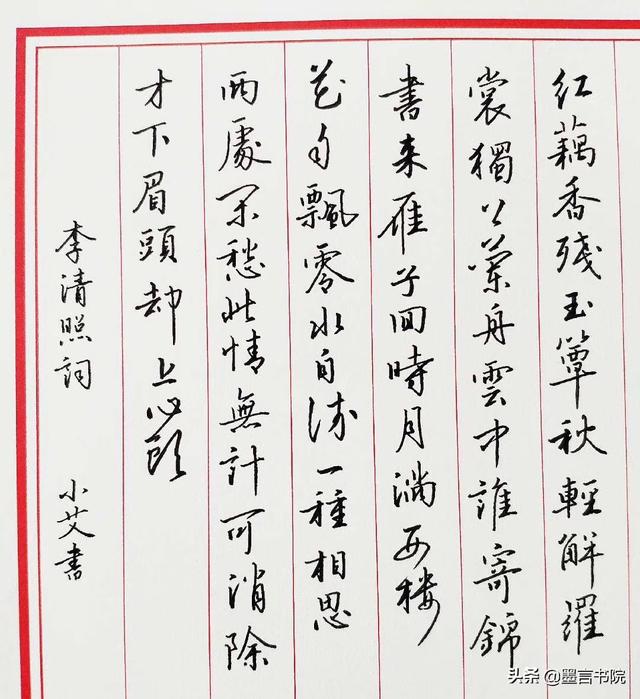 红藕香残玉簟秋輕解羅
裳獨上蘭舟雲中誰寄錦
書来雁字回時月满西楼
花自飄零水自流一種相思
两處闲愁此情無計可消除
才下眉頭却上心頭
李清照詞 小艾書
头条 @墨言书院